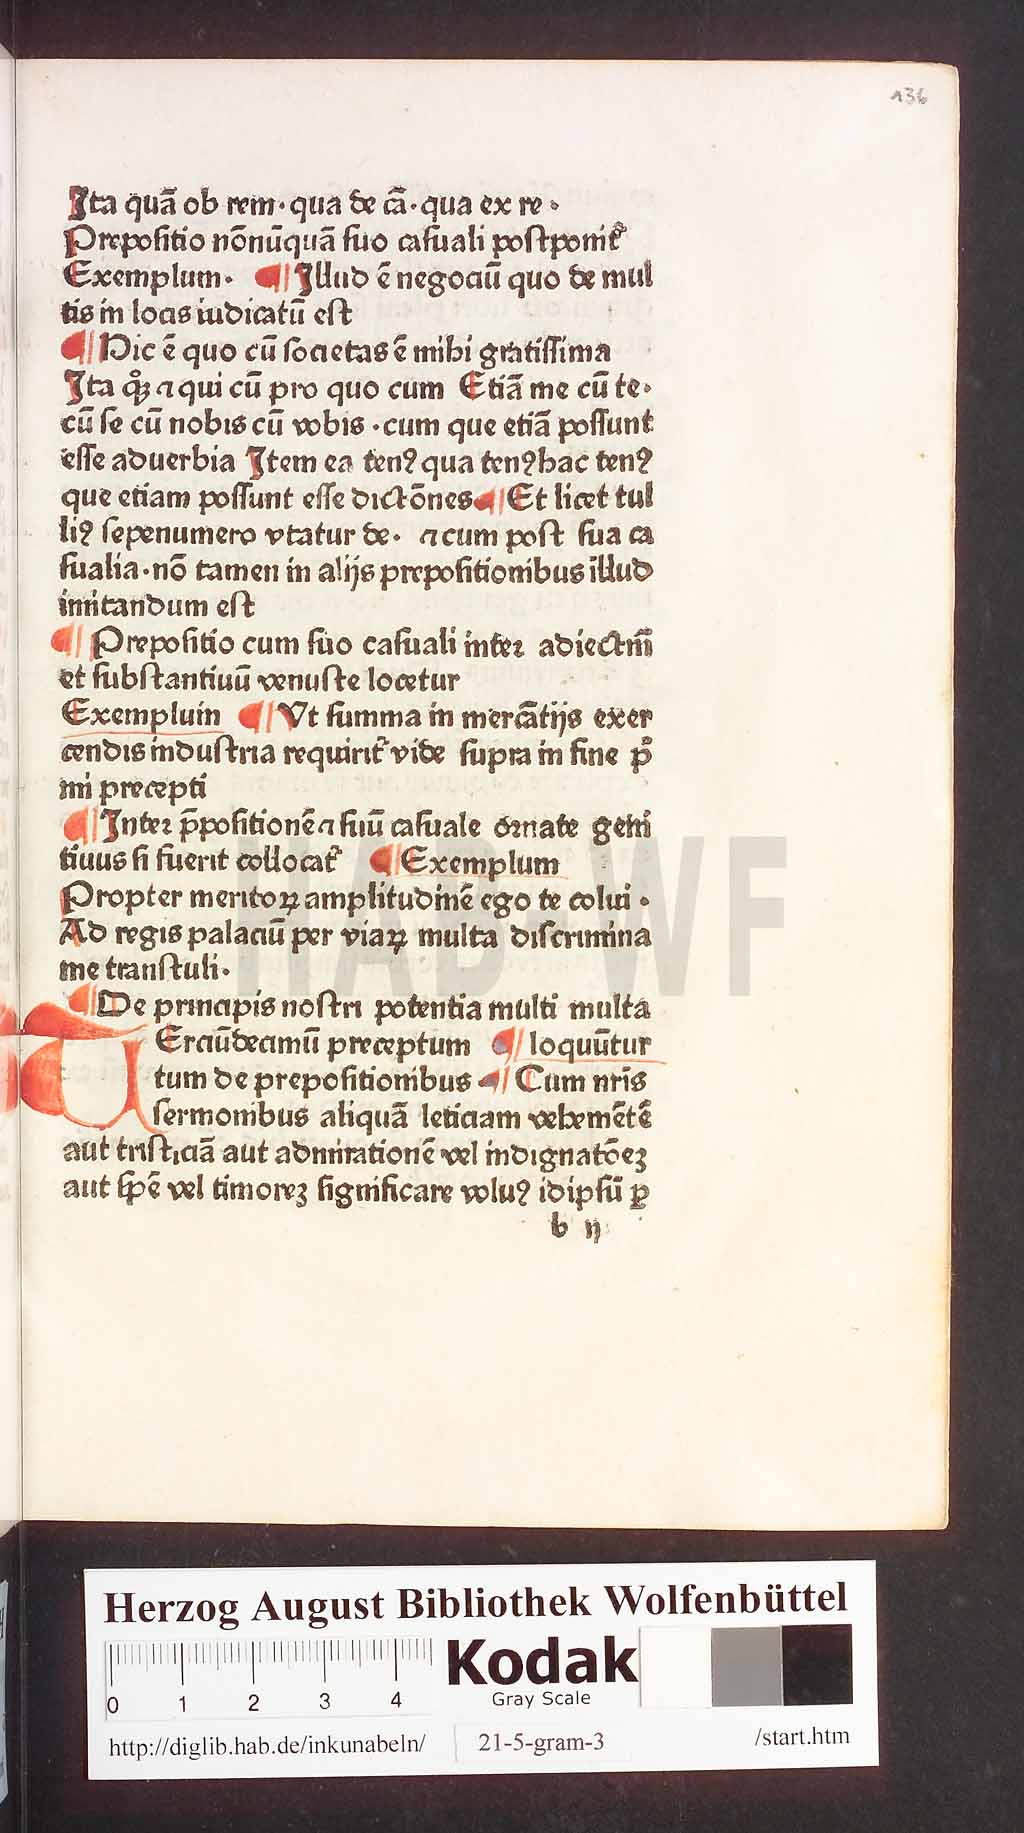 136
Ita quā ob rem · qua de cā · qua ex re ·
Prepositio nōnūquā suo casuali postponit᷑
Exemplum · ¶ Illud ē negociū quo de mul
tis in locis iudicatū est
¶ Dic ē quo cū societas ē mihi gratissima
Ita qꝫ ⁊ qui cū pro quo cum Etiā me cū te ·
cū se cū nobis cū vobis · cum que etiā possunt
esse aduerbia Item ea tenꝰ qua tenꝰ hac tenꝰ
que etiam possunt esse dictōnes ¶ Et licet tul
liꝰ sepenumero vtatur de · ⁊ cum post sua ca
sualia · nō tamen in alijs prepositionibus illud
imitandum est
¶ Prepositio cum suo casuali inter adiectiuū
et substantiuū venuste locetur
Exemplum ¶ Vt summa in mercātijs exer
cendis industria requirit᷑ vide supra in fine p̄
mi precepti
¶ Inter p̄positionē ⁊ suū casuale ornate geni
tiuus si fuerit collocat᷑ ¶ Exemplum
Propter meritoꝝ amplitudinē ego te colui ·
Ad regis palaciū per viaꝝ multa discrimina
me transtuli ·
¶ De principis nostri potentia multi multa
Terciūdecimū preceptum ¶ loquūtur
tum de prepositionibus ¶ Cum nr̄is
sermonibus aliquā leticiam vehemētē
aut tristiciā aut admirationē vel indignatōeꝫ
aut spē vel timoreꝫ significare voluꝰ idipsū ꝑ
b ij
HAB WF
Herzog August Bibliothek Wolfenbüttel
0 1 2 3 4
Kodak
Gray Scale
http://diglib.hab.de/inkunabeln/ 21-5-gram-3 /start.htm